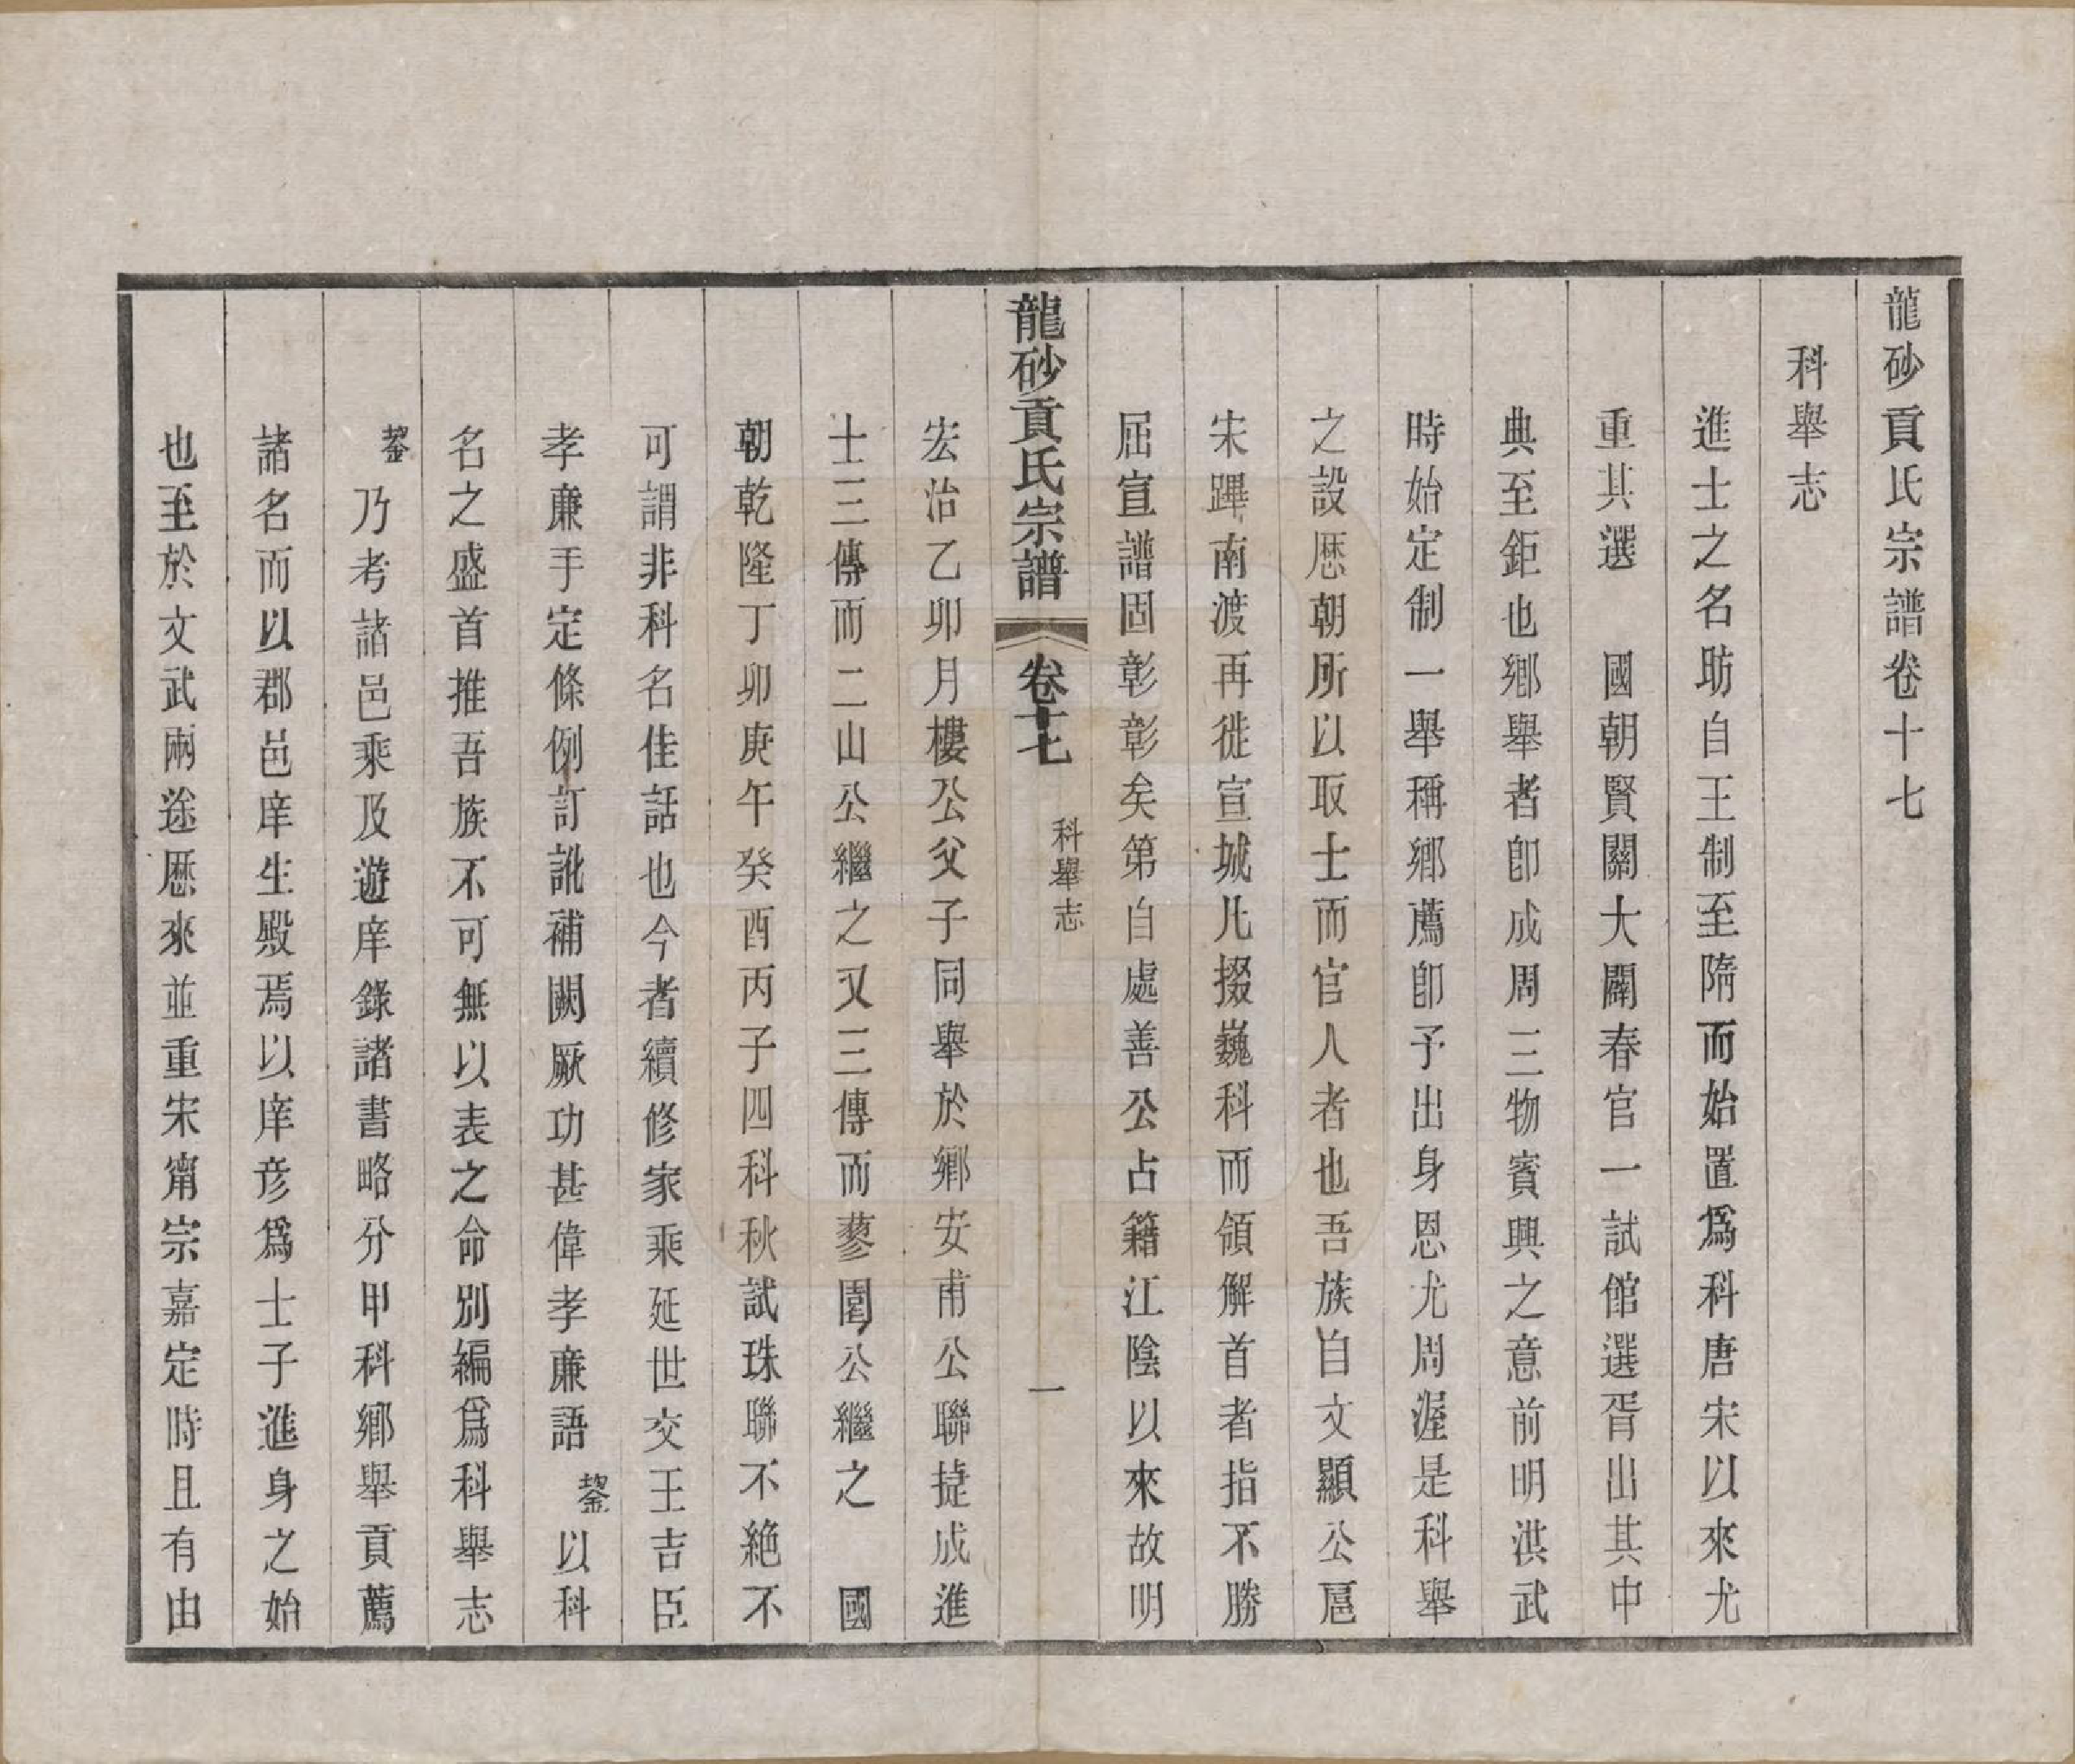 龍砂貢氏宗譜卷十七
科舉志
進士之名昉自王制至隋而始置爲科唐宋以來尤
重其選　國朝賢關大闢春官一試館選胥出其中
典至鉅也鄉舉者卽成周三物賓興之意前明洪武
時始定制一舉稱鄉薦卽予出身恩尤周渥是科舉
之設厯朝所以取士而官人者也吾族自文顯公扈
宋蹕南渡再徙宣城凡掇巍科而領解首者指不勝
屈宣譜固彰彰矣第自處善公占籍江陰以來故明
龍砂貢氏宗譜　卷十七　科舉志　一
宏治乙卯月樓公父子同舉於鄉安甫公聯捷成進
士三傳而二山公繼之又三傳而蓼園公繼之　國
朝乾隆丁卯庚午癸酉丙子四科秋試珠聯不絶不
可謂非科名佳話也今者續修家乘延世交王吉臣
孝廉手定條例訂訛補闕厥功甚偉孝廉語鋆以科
名之盛首推吾族不可無以表之命別編爲科舉志
鋆乃考諸邑乘及遊庠錄諸書略分甲科鄉舉貢薦
諸名而以郡邑庠生殿焉以庠彥爲士子進身之始
也至於文武兩途厯來並重宋甯宗嘉定時且有由